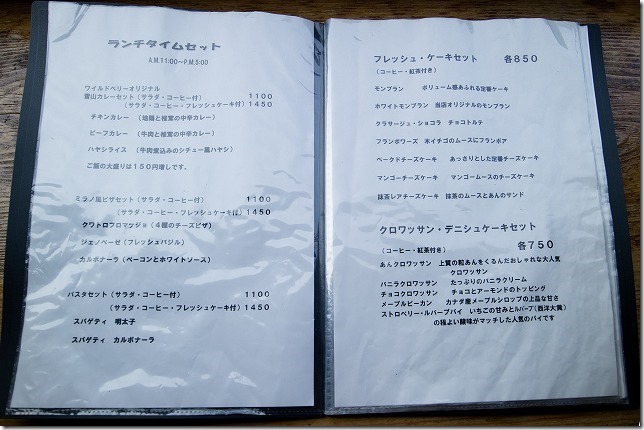 ランチタイムセット
A.M.11:00～P.M.5:00
ワイルドベリーオリジナル
雪山カレーセット（サラダ・コーヒー付） 1100
（サラダ・コーヒー・フレッシュケーキ付） 1450
チキンカレー （地鶏と椎茸の中辛カレー）
ビーフカレー （牛肉と椎茸の中辛カレー）
ハヤシライス （牛肉煮込みのシチュー風ハヤシ）
ご飯の大盛りは１５０円増しです。
ミラノ風ピザセット（サラダ・コーヒー付） 1100
（サラダ・コーヒー・フレッシュケーキ付） 1450
クワトロフロマッジョ（４種のチーズピザ）
ジェノベーゼ（フレッシュバジル）
カルボナーラ（ベーコンとホワイトソース）
パスタセット（サラダ・コーヒー付） 1100
（サラダ・コーヒー・フレッシュケーキ付） 1450
スパゲティ 明太子
スパゲティ カルボナーラ
フレッシュ・ケーキセット 各850
（コーヒー・紅茶付き）
モンブラン ボリューム感あふれる定番ケーキ
ホワイトモンブラン 当店オリジナルのモンブラン
クラサージュ・ショコラ チョコトルテ
フランボワーズ 木イチゴのムースにフランボア
ベークドチーズケーキ あっさりとした定番チーズケーキ
マンゴーチーズケーキ マンゴームースのチーズケーキ
抹茶レアチーズケーキ 抹茶のムースとあんのサンド
クロワッサン・デニシュケーキセット
（コーヒー・紅茶付き） 各750
あんクロワッサン 上質の粒あんをくるんだおしゃれな大人気
クロワッサン
バニラクロワッサン たっぷりのバニラクリーム
チョコクロワッサン チョコとアーモンドのトッピング
メープルピーカン カナダ産メープルシロップの上品な甘さ
ストロベリー・ルバーブパイ いちごの甘みとﾙﾊﾞｰﾌﾞ（西洋大黄）
の程よい酸味がマッチした人気のパイです